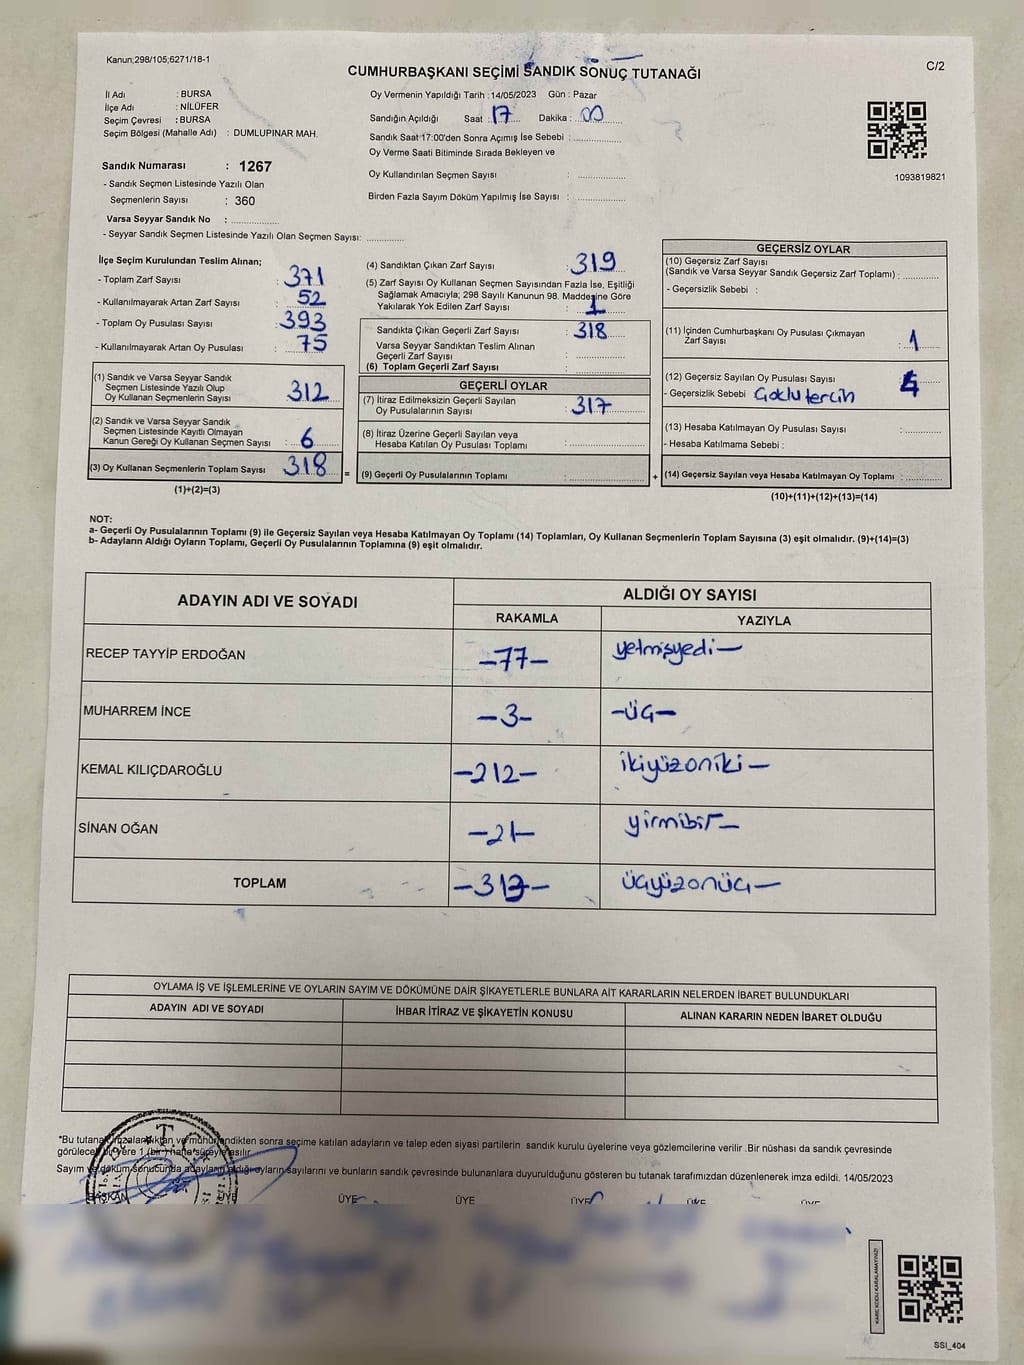 Kanun;298/105;6271/18-1
C/2
CUMHURBAŞKANI SEÇİMİ SANDIK SONUÇ TUTANAĞI
İl Adı : BURSA
İlçe Adı : NİLÜFER
Seçim Çevresi : BURSA
Seçim Bölgesi (Mahalle Adı) : DUMLUPINAR MAH.
Sandık Numarası : 1267
- Sandık Seçmen Listesinde Yazılı Olan
Seçmenlerin Sayısı : 360
Varsa Seyyar Sandık No :
- Seyyar Sandık Seçmen Listesinde Yazılı Olan Seçmen Sayısı:
Oy Vermenin Yapıldığı Tarih : 14/05/2023 Gün : Pazar
Sandığın Açıldığı Saat : 17 Dakika : 00
Sandık Saat 17:00'den Sonra Açımış İse Sebebi :
Oy Verme Saati Bitiminde Sırada Bekleyen ve
Oy Kullandırılan Seçmen Sayısı :
Birden Fazla Sayım Döküm Yapılmış İse Sayısı :
1093819821
İlçe Seçim Kurulundan Teslim Alınan;
- Toplam Zarf Sayısı : 371
- Kullanılmayarak Artan Zarf Sayısı : 52
- Toplam Oy Pusulası Sayısı : 393
- Kullanılmayarak Artan Oy Pusulası : 75
(1) Sandık ve Varsa Seyyar Sandık
Seçmen Listesinde Yazılı Olup
Oy Kullanan Seçmenlerin Sayısı : 312
(2) Sandık ve Varsa Seyyar Sandık
Seçmen Listesinde Kayıtlı Olmayan
Kanun Gereği Oy Kullanan Seçmen Sayısı : 6
(3) Oy Kullanan Seçmenlerin Toplam Sayısı 318 =
(1)+(2)=(3)
(4) Sandıktan Çıkan Zarf Sayısı : 319
(5) Zarf Sayısı Oy Kullanan Seçmen Sayısından Fazla İse, Eşitliği
Sağlamak Amacıyla; 298 Sayılı Kanunun 98. Maddesine Göre
Yakılarak Yok Edilen Zarf Sayısı : 1
Sandıkta Çıkan Geçerli Zarf Sayısı : 318
Varsa Seyyar Sandıktan Teslim Alınan
Geçerli Zarf Sayısı :
(6) Toplam Geçerli Zarf Sayısı :
GEÇERLİ OYLAR
(7) İtiraz Edilmeksizin Geçerli Sayılan
Oy Pusulalarının Sayısı : 317
(8) İtiraz Üzerine Geçerli Sayılan veya
Hesaba Katılan Oy Pusulası Toplamı :
(9) Geçerli Oy Pusulalarının Toplamı : +
GEÇERSİZ OYLAR
(10) Geçersiz Zarf Sayısı
(Sandık ve Varsa Seyyar Sandık Geçersiz Zarf Toplamı) :
- Geçersizlik Sebebi :
(11) İçinden Cumhurbaşkanı Oy Pusulası Çıkmayan
Zarf Sayısı : 1
(12) Geçersiz Sayılan Oy Pusulası Sayısı :
- Geçersizlik Sebebi Çoklu tercih
(13) Hesaba Katılmayan Oy Pusulası Sayısı :
- Hesaba Katılmama Sebebi :
(14) Geçersiz Sayılan veya Hesaba Katılmayan Oy Toplamı :
(10)+(11)+(12)+(13)=(14)
NOT:
a- Geçerli Oy Pusulalarının Toplamı (9) ile Geçersiz Sayılan veya Hesaba Katılmayan Oy Toplamı (14) Toplamları, Oy Kullanan Seçmenlerin Toplam Sayısına (3) eşit olmalıdır. (9)+(14)=(3)
b- Adayların Aldığı Oyların Toplamı, Geçerli Oy Pusulalarının Toplamına (9) eşit olmalıdır.
ADAYIN ADI VE SOYADI
ALDIĞI OY SAYISI
RAKAMLA YAZIYLA
RECEP TAYYİP ERDOĞAN -77- yetmişyedi-
MUHARREM İNCE -3- -üç-
KEMAL KILIÇDAROĞLU -212- ikiyüzoniki-
SİNAN OĞAN -21- yirmibir-
TOPLAM -313- üçyüzonüç-
OYLAMA İŞ VE İŞLEMLERİNE VE OYLARIN SAYIM VE DÖKÜMÜNE DAİR ŞİKAYETLERLE BUNLARA AİT KARARLARIN NELERDEN İBARET BULUNDUKLARI
ADAYIN ADI VE SOYADI İHBAR İTİRAZ VE ŞİKAYETİN KONUSU ALINAN KARARIN NEDEN İBARET OLDUĞU
*Bu tutanak imzalandıktan ve mühürlendikten sonra seçime katılan adayların ve talep eden siyasi partilerin sandık kurulu üyelerine veya gözlemcilerine verilir .Bir nüshası da sandık çevresinde
görülecek bir yere 1 (bir) hafta süreyle asılır.
Sayım ve döküm sonucunda adayların aldığı oyların sayılarını ve bunların sandık çevresinde bulunanlara duyurulduğunu gösteren bu tutanak tarafımızdan düzenlenerek imza edildi. 14/05/2023
BAŞKAN ÜYE ÜYE ÜYE ÜYE ÜYE ÜYE
T.C.
KARE KODU KARALAMAYINIZ!
SSI_404